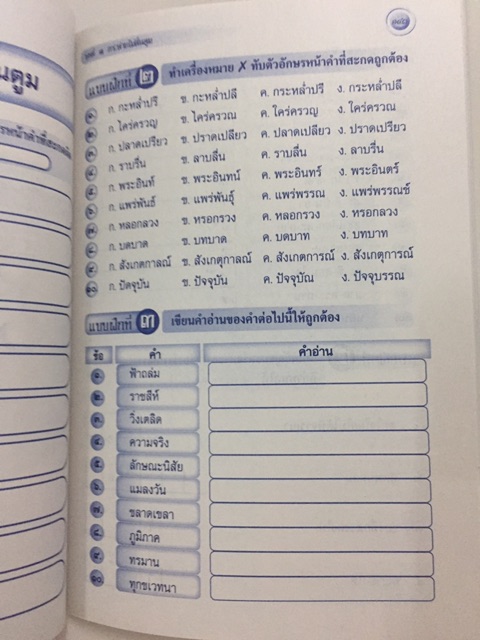 นตูม
ชุดที่ ๑ กระต่ายไม่ตื่นตูม
แบบฝึกที่ ๒ ทำเครื่องหมาย ✗ ทับตัวอักษรหน้าคำที่สะกดถูกต้อง
๑ ก. กะหล่ำปรี ข. กะหล่ำปลี ค. กระหล่ำปรี ง. กระหล่ำปลี
๒ ก. ใคร่ครวญ ข. ใคร่ควณ ค. ใคร่ควญ ง. ใคร่ครวณ
๓ ก. ปลาดเปรียว ข. ปราดเปลียว ค. ปลาดเปลียว ง. ปราดเปรียว
๔ ก. ราบรื่น ข. ลาบลื่น ค. ราบลื่น ง. ลาบรื่น
๕ ก. พระอินท์ ข. พระอินทน์ ค. พระอินทร์ ง. พระอินตร์
๖ ก. แพร่พันธ์ ข. แพร่พันธุ์ ค. แพร่พรรณ ง. แพร่พรรณช์
๗ ก. หลอกลวง ข. หรอกรวง ค. หลอกรวง ง. หรอกลวง
๘ ก. บดบาด ข. บทบาด ค. บดบาท ง. บทบาท
๙ ก. สังเกตกาลณ์ ข. สังเกตุกาลณ์ ค. สังเกตการณ์ ง. สังเกตุการณ์
๑๐ ก. ปัดจุบัน ข. ปัจจุบัน ค. ปัจจุบัณ ง. ปัจจุบรรณ
แบบฝึกที่ ๓ เขียนคำอ่านของคำต่อไปนี้ให้ถูกต้อง
ข้อ คำ คำอ่าน
๑. ฟ้าถล่ม
๒. ราชสีห์
๓. วิ่งเตลิด
๔. ความจริง
๕. ลักษณะนิสัย
๖. แมลงวัน
๗. ขลาดเขลา
๘. ภูมิภาค
๙. ทรมาน
๑๐. ทุกขเวทนา